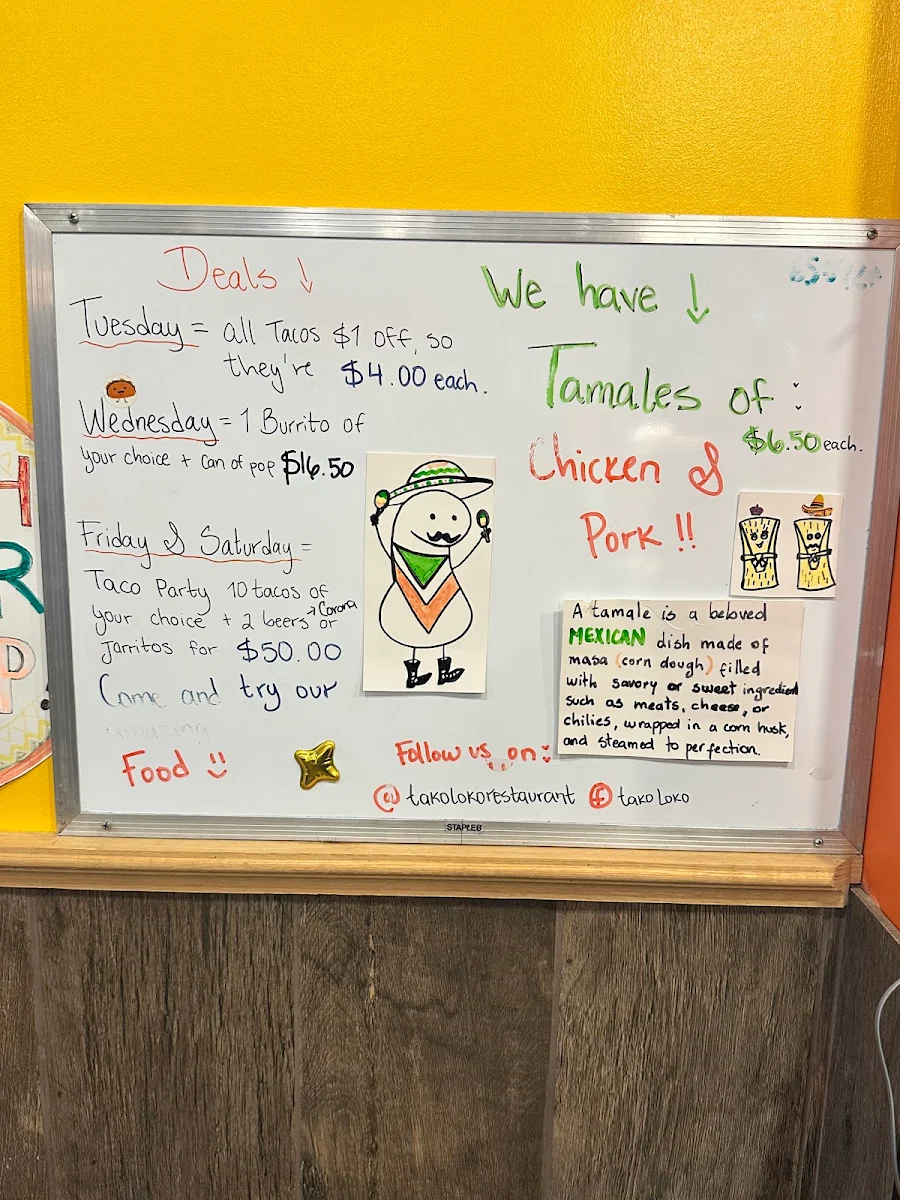 Deals ↓
Tuesday = all Tacos $1 off, so
they're $4.00 each.
Wednesday = 1 Burrito of
your choice + can of pop $16.50
Friday & Saturday =
Taco Party 10 tacos of
your choice + 2 beers → Corona or
Jarritos for $50.00
Come and try our
amazing
Food :)
We have ↓
Tamales of :
$6.50 each.
Chicken &
Pork !!
A tamale is a beloved
MEXICAN dish made of
masa (corn dough) filled
with savory or sweet ingredient
such as meats, cheese, or
chilies, wrapped in a corn husk,
and steamed to perfection.
Follow us on :
@ takolokorestaurant f tako Loko
STAPLES
H
R
P